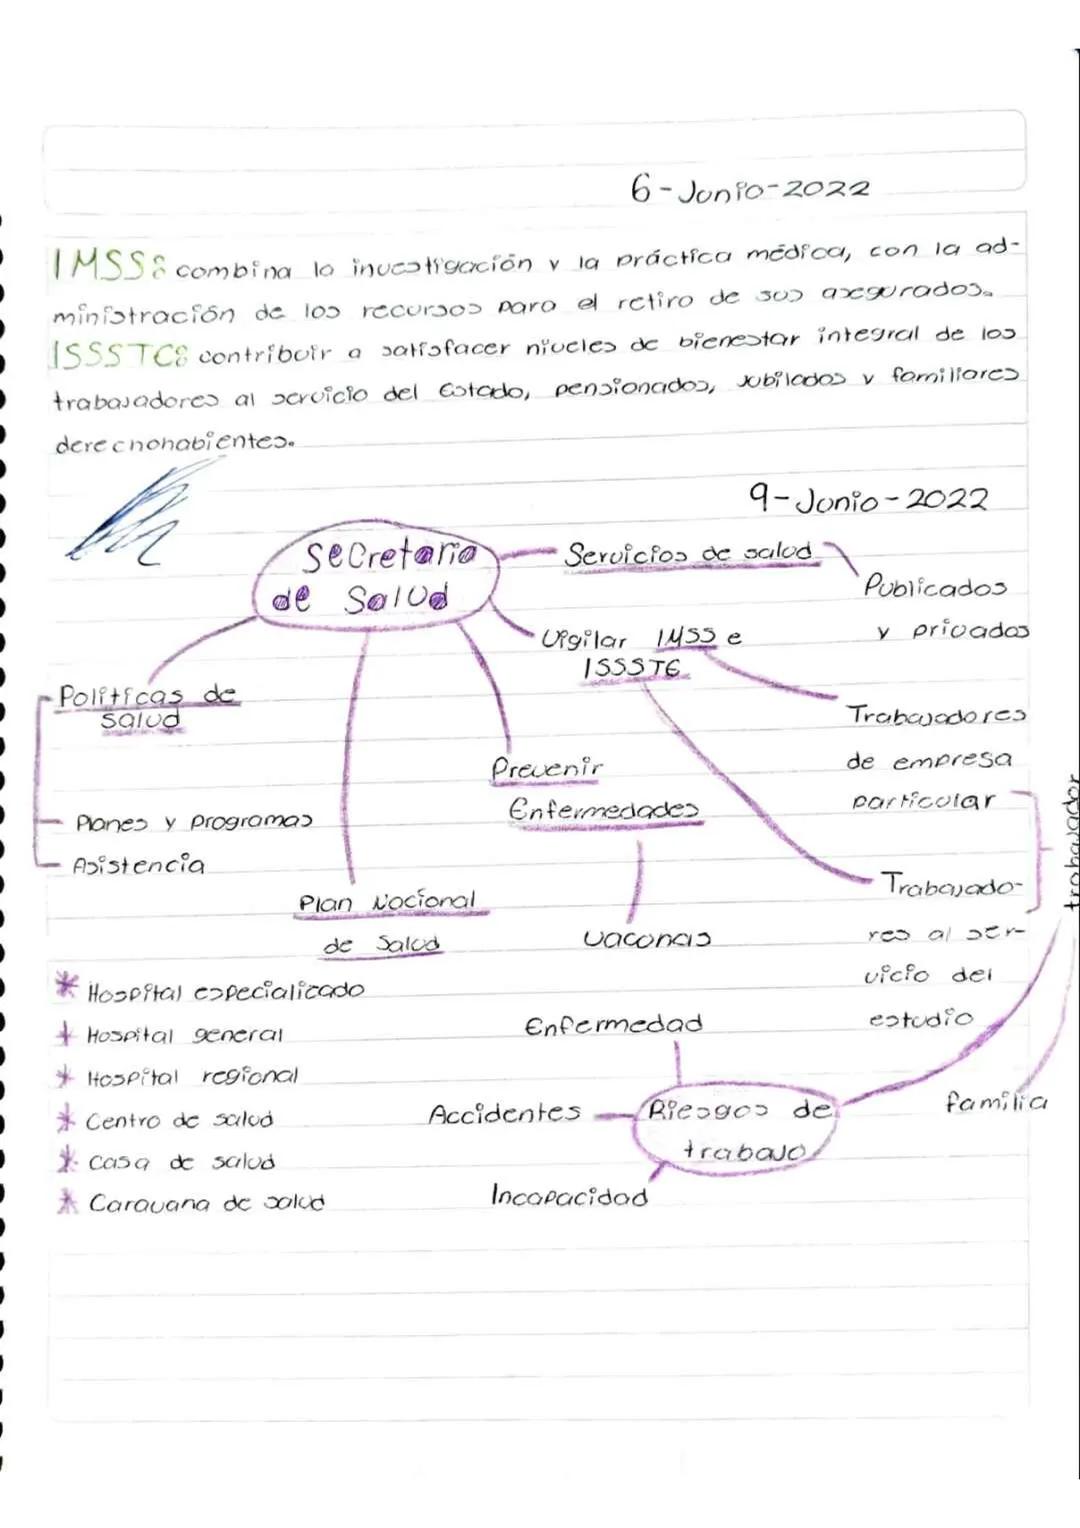 6-Junio-2022
IMSS: combina la investigación y la práctica médica, con la ad-
ministración de los recursos para el retiro de sus asegurados.
ISSSTE: contribuir a satisfacer niveles de bienestar integral de los
trabajadores al servicio del Estado, pensionados, jubilados y familiares
derechohabientes.
9-Junio-2022
Secretaria
de Salud
Servicios de salud
Publicados
y privados
Vigilar IMSS e
ISSSTE
Políticas de
salud
Trabajadores
de empresa
particular
Prevenir
Enfermedades
Planes y programas
Asistencia
trabajador
Trabajado-
res al ser-
vicio del
estudio
Plan Nacional
de Salud
Vacunas
* Hospital especializado
* Hospital general
* Hospital regional
* Centro de salud
* Casa de salud
* Caravana de salud
Enfermedad
Accidentes
Riesgos de
trabajo
Incapacidad
familia